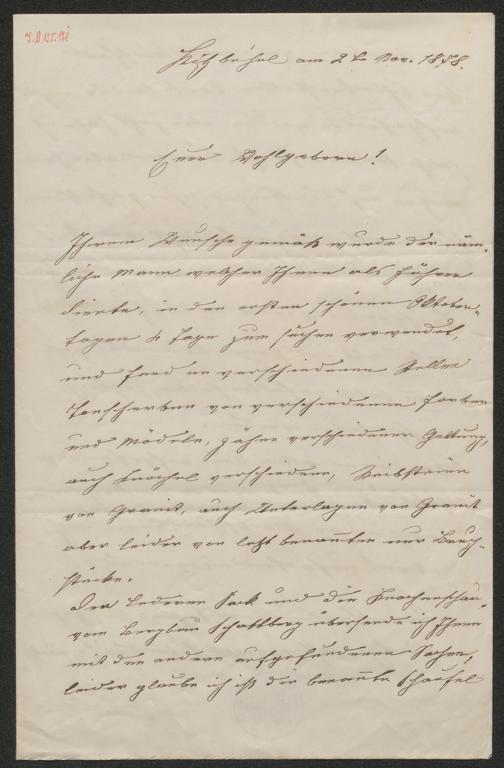 Kitzbühel am 2t Nov. 1878.
Euer Wohlgeborn!
Ihrem Wunsche gemäß wurde der näm-
liche Mann welcher Ihnen als Führer
diente, in den ersten schönen Oktober-
tagen 4 Tage zum suchen verwendet,
und fand an verschiedenen Stellen
Tonscherben von verschiedenen Farben
und Mödeln, Zähne verschiedener Gattung,
auch Knöchel verschiedene, Reibsteine
von Granit, auch Unterlagen von Granit
aber leider von letzt benannten nur Bruch-
stücke.
Den Ledernen Sack und die
vom Bergbau Schattberg übersende ich Ihnen
mit den andern aufgefundenen Sachen,
leider glaube ich ist die benannte Schaufel